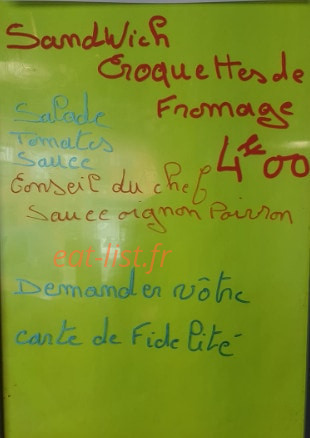 Sandwich
Croquettes de
Fromage
Salade
Tomates
Sauce
4€00
Conseil du chef
Sauce oignon Poivron
eat-list.fr
Demander vôtre
carte de Fidelité